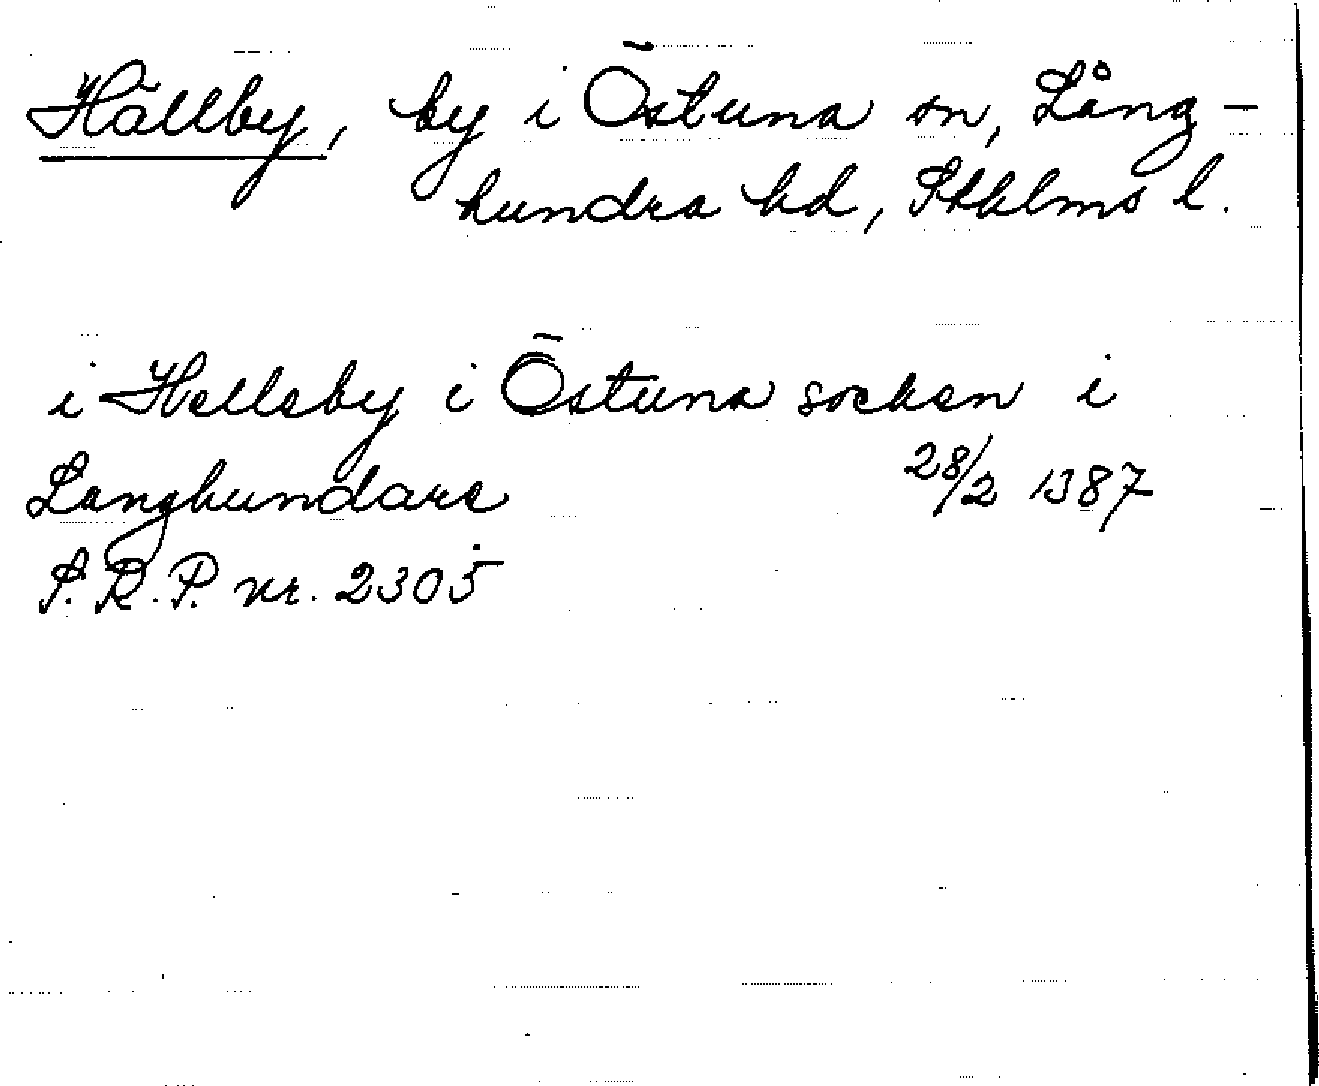 Hällby, by i Östuna sn, Lång-
hundra hd, Sthlms l.
i Hellaby i Östuna socken i
Langhundare 28/2 1387
S.R.P. nr. 2305